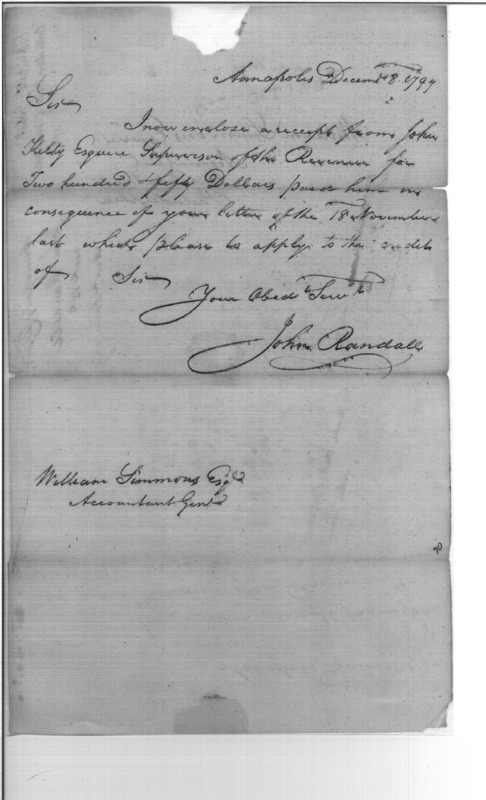 Annapolis Decem.r 8. 1797
Sir
I now enclose a receipt from John
Kilty Esquire Supervisor of the Revenue for
Two hundred & fifty Dollars paid him in
consequence of your letter of the 18 November
last which please to apply to the credit
of Sir
Your Obed.t Serv.t
John Randall
William Simmons Esq.r
Accountant Gen.l